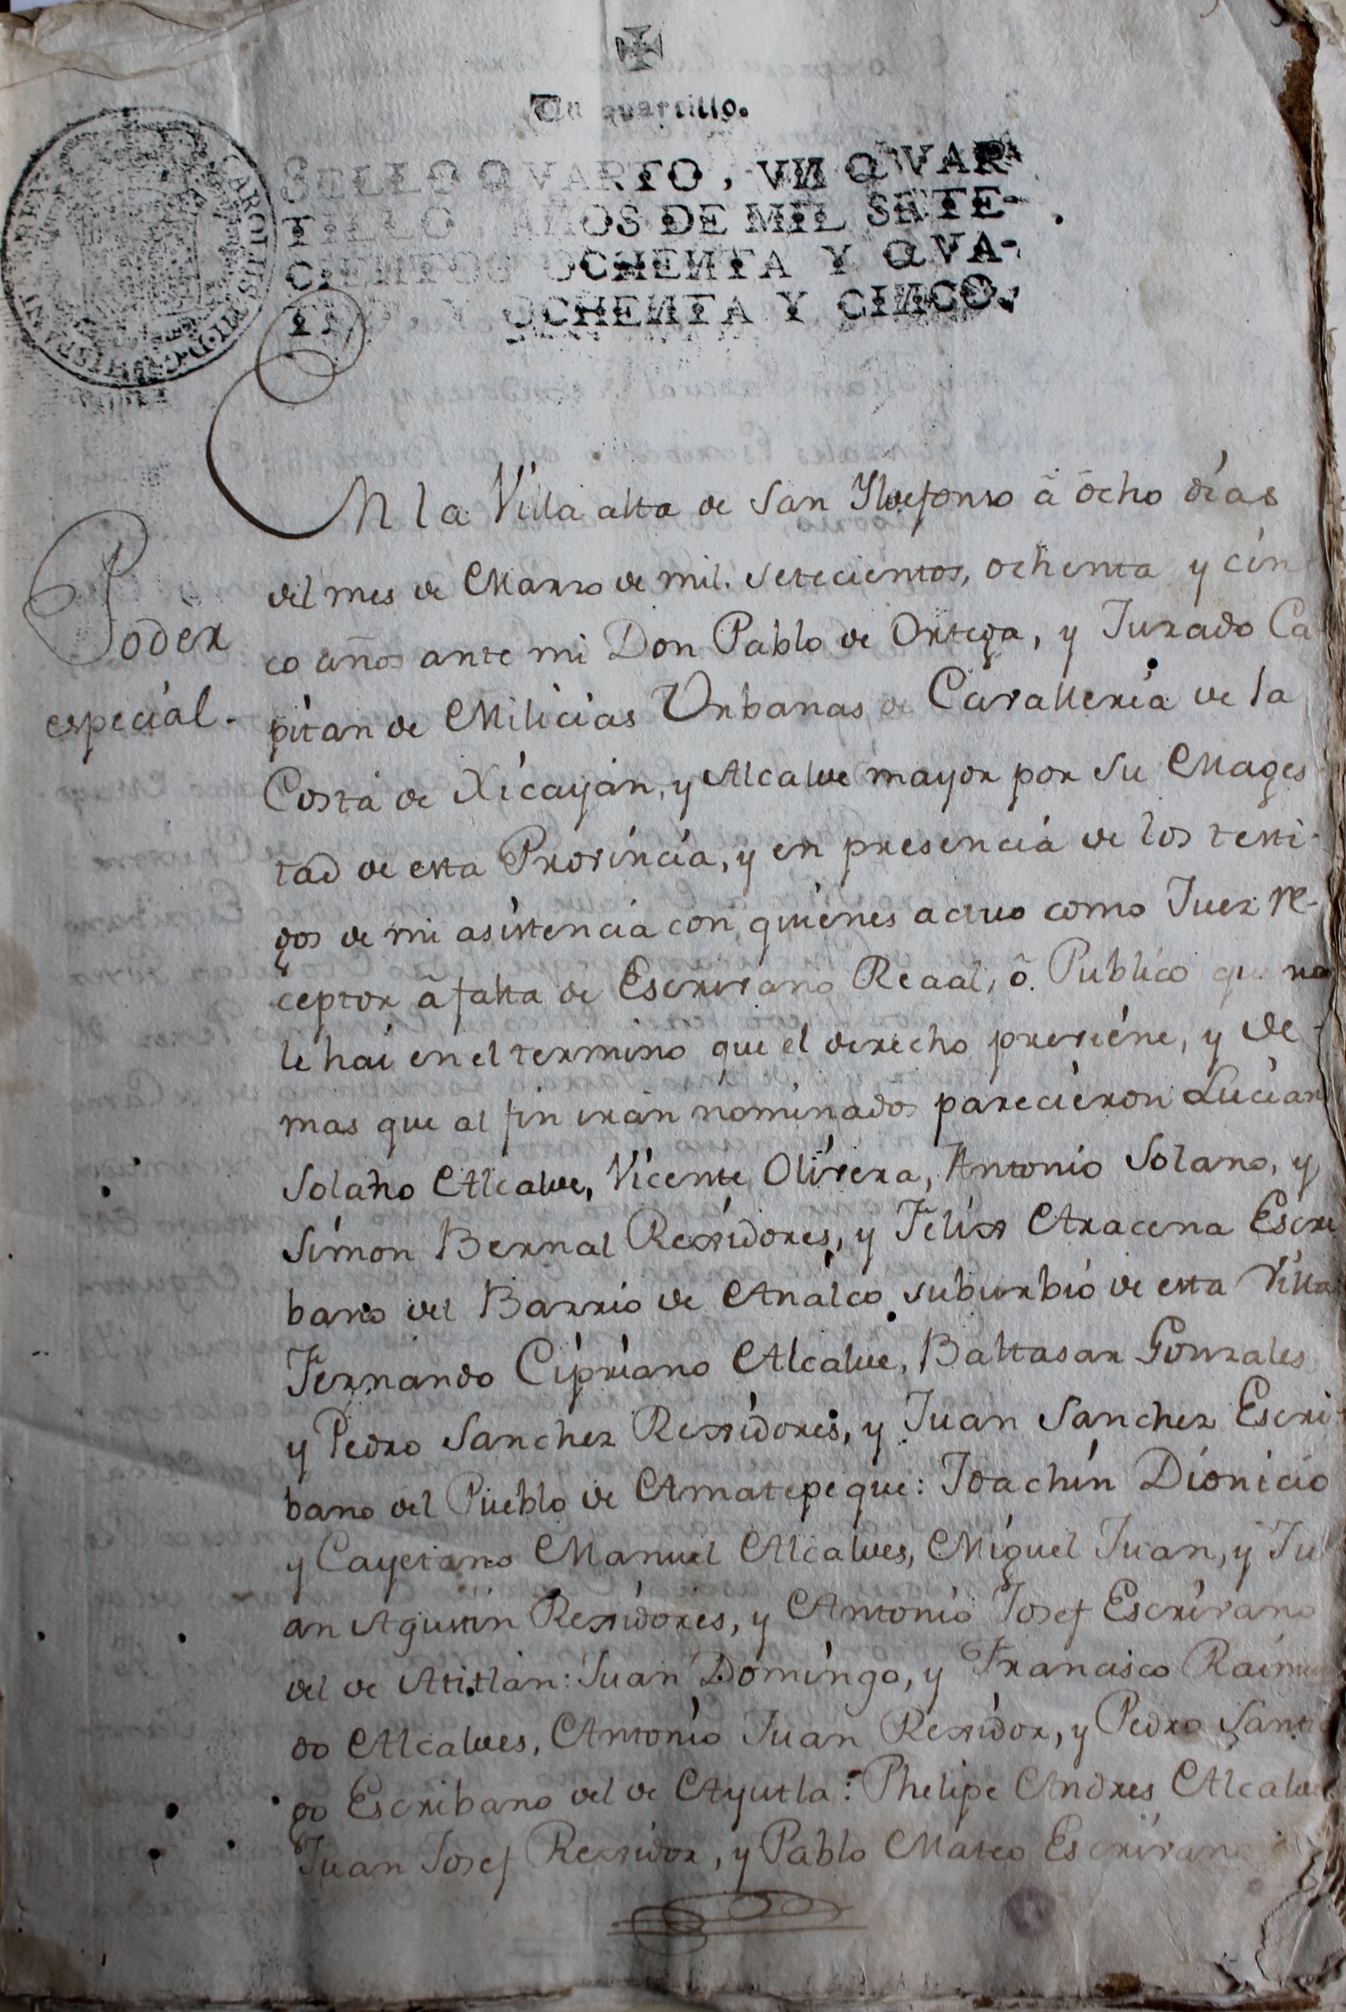 Un quartillo.
SELLO QVARTO, VN QVAR-
TILLO, AÑOS DE MIL SETE-
CIENTOS OCHENTA Y QVA-
TRO, Y OCHENTA Y CINCO.
CAROLUS III D G HISPAN REX
En la Villa alta de San Yldefonso â ôcho días
del mes de Marzo de mil. setecientos, ochenta y cin
co años ante mi Don Pablo de Ortega, y Jurado Ca
Poder
especial.
pitan de Milicias Urbanas de Cavalleria de la
Costa de Xicayán, y Alcalde mayor por Su Mages
tad de esta Provincia, y en presencia de los testi-
gos de mi asistencia con quienes actuo como Juez re-
ceptor â falta de Escrivano Reaal, ô Publico que no
le hai en el termino que el derecho previéne, y de-
mas que al fin irán nominados pareciéron Lucian
Solano Alcalde, Vicente Olivera, Antonio Solano, y
Simon Bernal Rexidores, y Felix Aracena Escri
bano del Barrio de Analco suburbio de esta Villa
Fernando Cipriano Alcalde, Baltasar Gonzales
y Pedro Sanchez Rexidores, y Juan Sanchez Escri-
bano del Pueblo de Amatepeque: Joachin Dionicio
y Cayetano Manuel Alcaldes, Miguel Juan, y Ju
an Agustin Rexidores, y Antonio Josef Escrivano
del de Atitlán: Juan Domingo, y Francisco Raimun
do Alcaldes, Antonio Juan Rexidor, y Pedro Santia
go Escribano del de Ayutla: Phelipe Andres Alcalde
Juan Josef Rexidor, y Pablo Mateo Escrivano